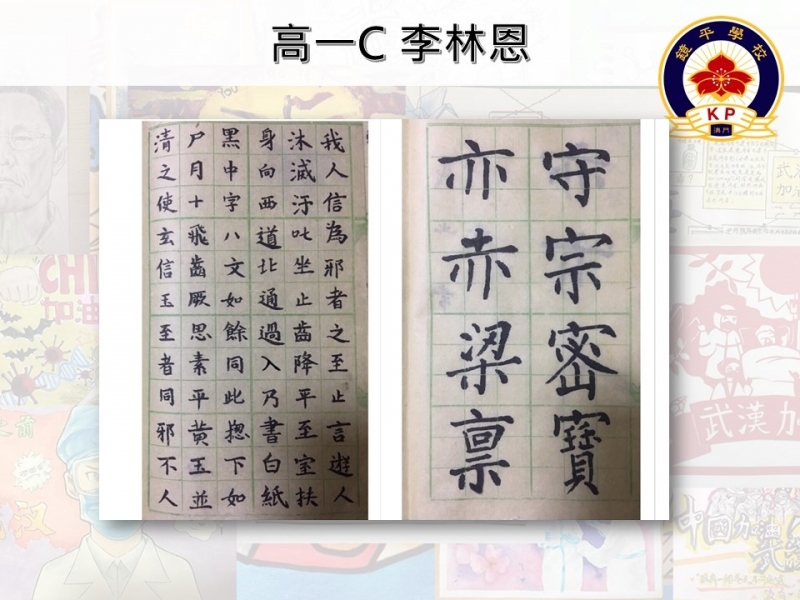 高一C 李林恩
鏡平學校
KP
澳門
我人信為邪者之至止言遊人
沐滅汙吐坐止齒降平至室扶
身向西道北通過入乃書白紙
黑中字八文如餘同此揔下如
戶月十飛齒厥思素平黃玉並
清之使玄信玉至者同邪不人
守宗密寶
亦赤梁稟
CHI
加油
武漢加
中國加油